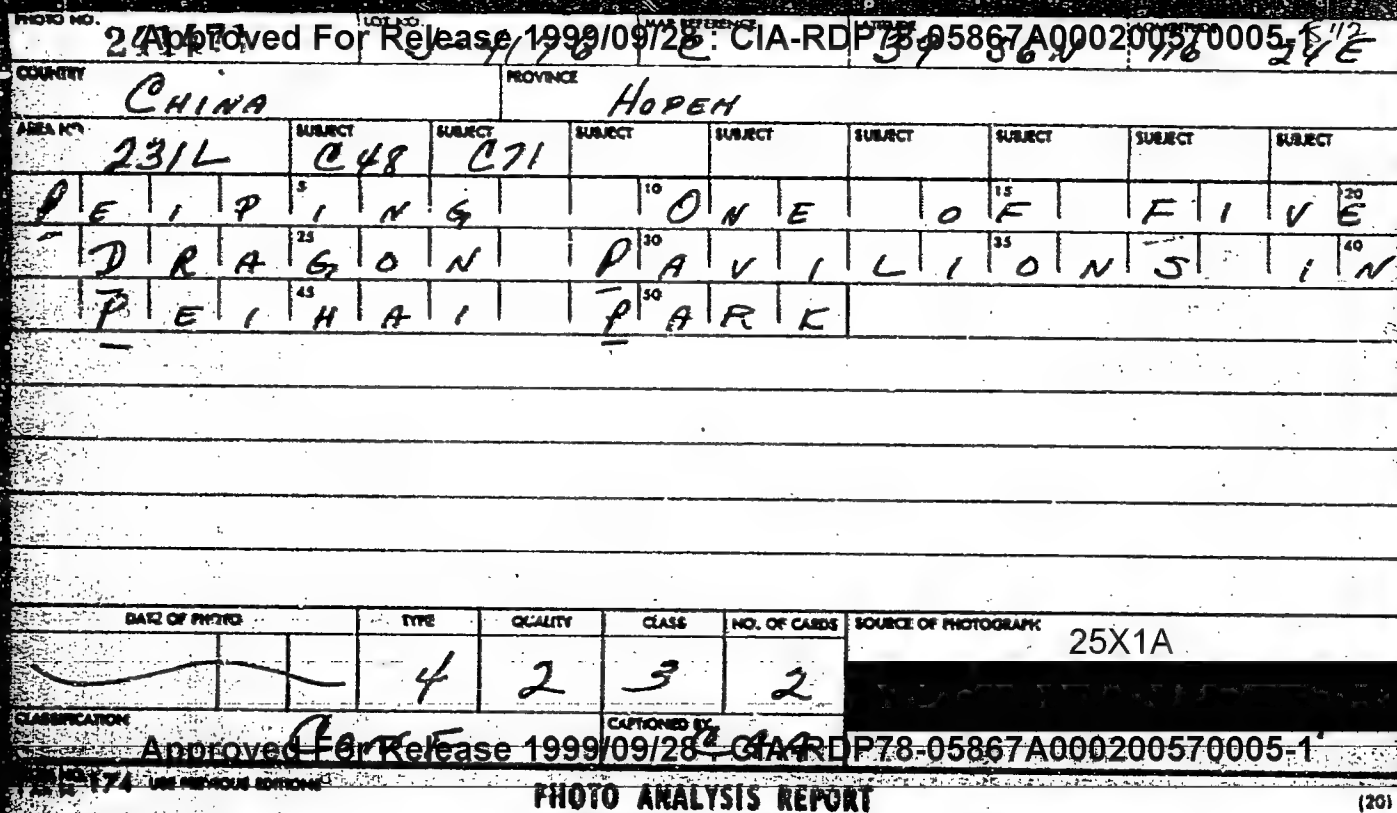 PHOTO NO. LOT NO. MAP REFERENCE LATITUDE LONGITUDE
Approved For Release 1999/09/28 : CIA-RDP78-05867A000200570005-1
39 56 N 116 24 E
COUNTRY CHINA PROVINCE HOPEH
AREA NO 231L SUBJECT C48 SUBJECT C71 SUBJECT SUBJECT SUBJECT SUBJECT SUBJECT SUBJECT
5 10 15 20
PEIPING ONE OF FIVE
25 30 35 40
DRAGON PAVILIONS IN
45 50
PEI HAI PARK
DATE OF PHOTO TYPE QUALITY CLASS NO. OF CARDS SOURCE OF PHOTOGRAPH
4 2 3 2 25X1A
CLASSIFICATION CAPTIONED BY
Approved For Release 1999/09/28 : CIA-RDP78-05867A000200570005-1
174 USE PREVIOUS EDITIONS
PHOTO ANALYSIS REPORT (20)